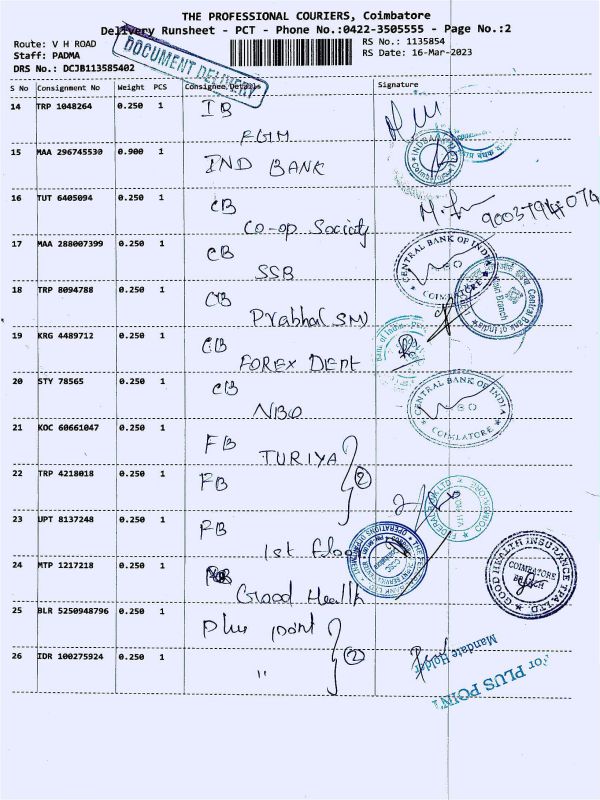 THE PROFESSIONAL COURIERS, Coimbatore
Delivery Runsheet - PCT - Phone No.:0422-3505555 - Page No.:2
Route: V H ROAD
RS No.: 1135854
Staff: PADMA
RS Date: 16-Mar-2023
DRS No.: DCJB113585402
DOCUMENT DELIVERY
S No Consignment No Weight PCS Consignee Details Signature
14 TRP 1048264 0.250 1 IB
FGM
15 MAA 296745530 0.900 1 IND BANK
16 TUT 6405094 0.250 1 CB
Co-op Society
17 MAA 288007399 0.250 1 CB
SSB
CENTRAL BANK OF INDIA
COIMBATORE
18 TRP 8094788 0.250 1 CB
Prabha(SM)
Central Bank of India
Main Branch
19 KRG 4489712 0.250 1 CB
FOREX DEPT
20 STY 78565 0.250 1 CB
NBO
CENTRAL BANK OF INDIA
COIMBATORE
21 KOC 60661047 0.250 1 FB
TURIYA
22 TRP 4218018 0.250 1 FB
2
23 UPT 8137248 0.250 1 FB
1st floor
24 MTP 1217218 0.250 1
Good Health
GOOD HEALTH INSURANCE TPA LTD.
COIMBATORE
BRANCH
25 BLR 5250948796 0.250 1 Plus point
26 IDR 100275924 0.250 1 "
2
Mandate Holder
For PLUS POINT